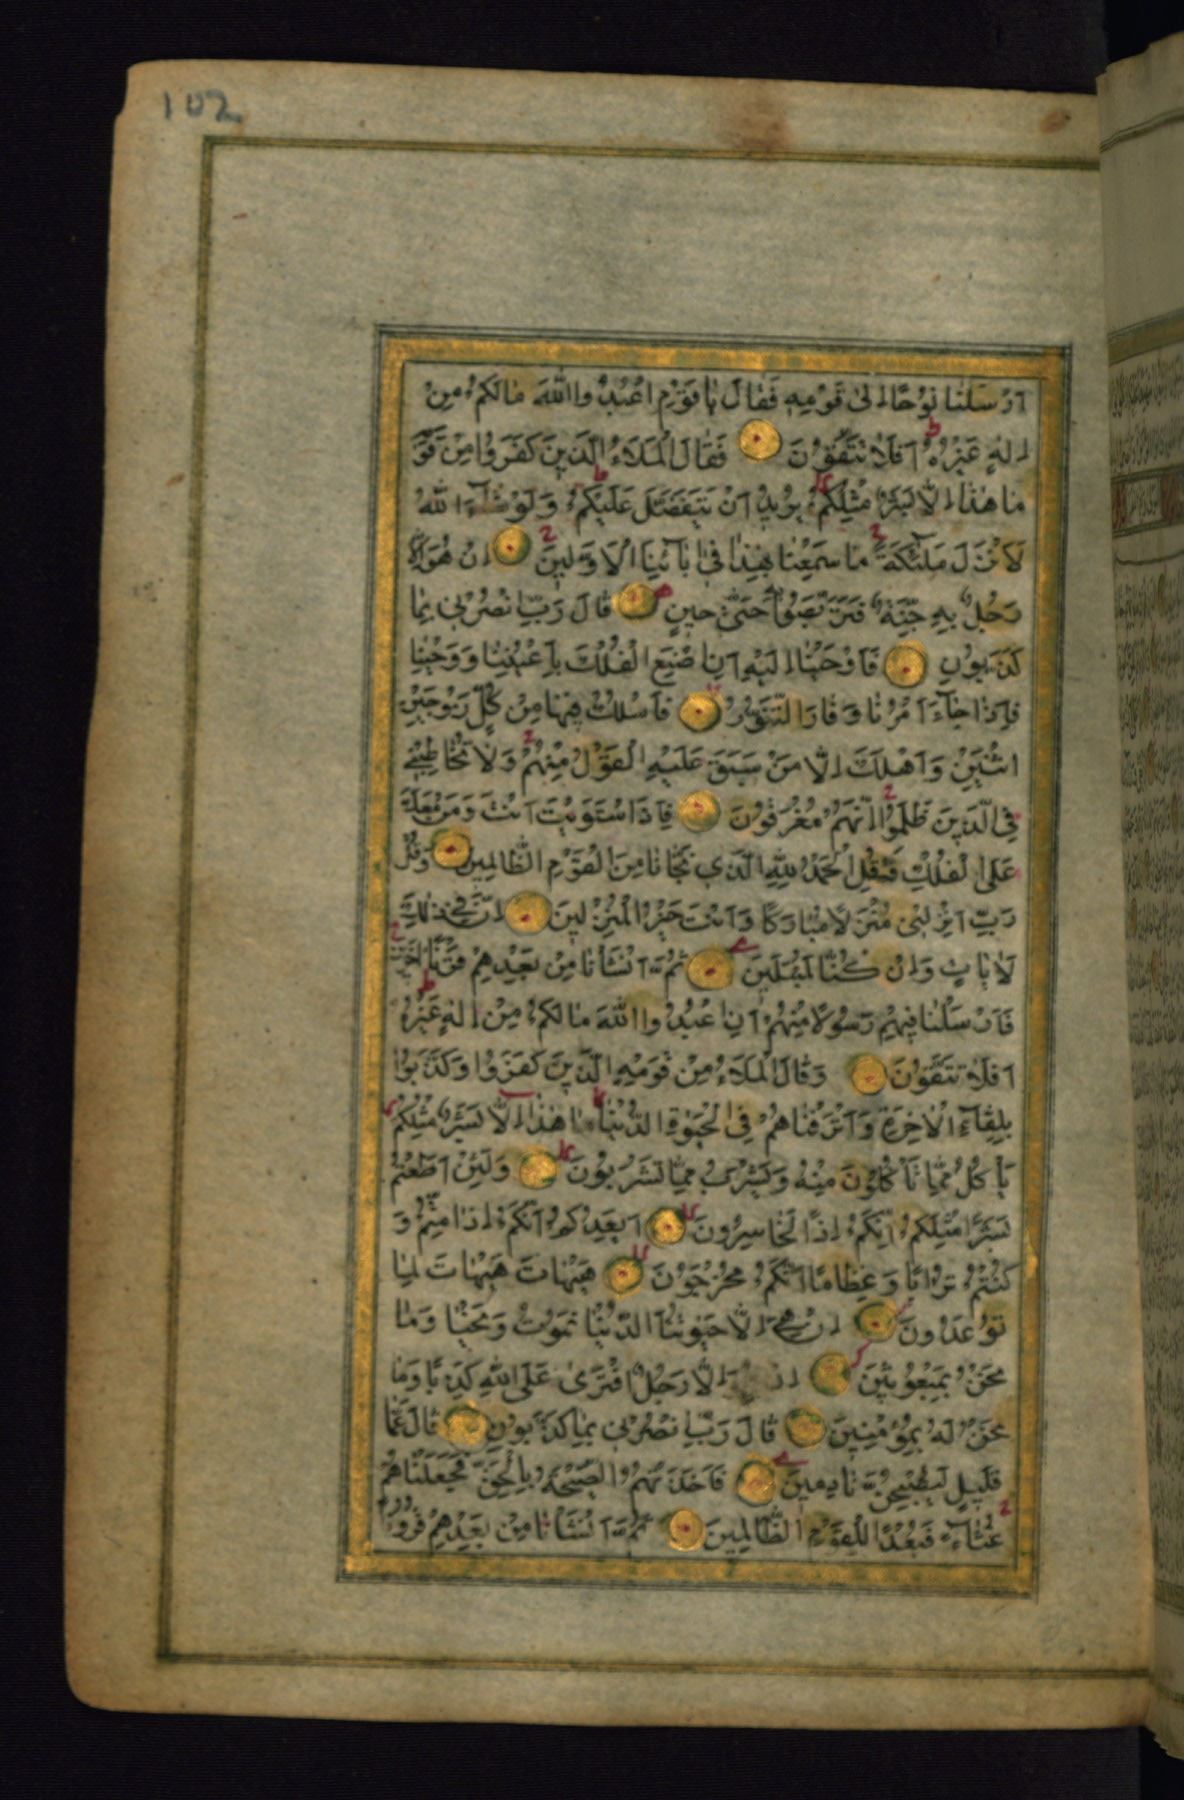 102
اَرْسَلْنَا نُوحًا اِلٰى قَوْمِهٖ فَقَالَ يَا قَوْمِ اعْبُدُوا اللّٰهَ مَا لَكُمْ مِنْ
اِلٰهٍ غَيْرُهُ اَفَلَا تَتَّقُونَ فَقَالَ الْمَلَاءُ الَّذِينَ كَفَرُوا مِنْ قَوْ
مَا هٰذَا اِلَّا بَشَرٌ مِثْلُكُمْ يُرِيدُ اَنْ يَتَفَضَّلَ عَلَيْكُمْ وَلَوْ شَآءَ اللّٰهُ
لَاَنْزَلَ مَلٰٓئِكَةً مَا سَمِعْنَا بِهٰذَا فِىٓ اٰبَآئِنَا الْاَوَّلِينَ اِنْ هُوَ اِلَّا
رَجُلٌ بِهٖ جِنَّةٌ فَتَرَبَّصُوا حَتّٰى حِينٍ قَالَ رَبِّ انْصُرْنِى بِمَا
كَذَّبُونِ فَاَوْحَيْنَا اِلَيْهِ اَنِ اصْنَعِ الْفُلْكَ بِاَعْيُنِنَا وَوَحْيِنَا
فَاِذَا جَآءَ اَمْرُنَا وَفَارَ التَّنُّورُ فَاسْلُكْ فِيهَا مِنْ كُلٍّ زَوْجَيْنِ
اثْنَيْنِ وَاَهْلَكَ اِلَّا مَنْ سَبَقَ عَلَيْهِ الْقَوْلُ مِنْهُمْ وَلَا تُخَاطِبْنِى
فِى الَّذِينَ ظَلَمُوا اِنَّهُمْ مُغْرَقُونَ فَاِذَا اسْتَوَيْتَ اَنْتَ وَمَنْ مَعَكَ
عَلَى الْفُلْكِ فَقُلِ الْحَمْدُ لِلّٰهِ الَّذِى نَجَّانَا مِنَ الْقَوْمِ الظَّالِمِينَ وَقُلْ
رَبِّ اَنْزِلْنِى مُنْزَلًا مُبَارَكًا وَاَنْتَ خَيْرُ الْمُنْزِلِينَ اِنَّ فِى ذٰلِكَ
لَاٰيَاتٍ وَاِنْ كُنَّا لَمُبْتَلِينَ ثُمَّ اَنْشَأْنَا مِنْ بَعْدِهِمْ قَرْنًا اٰخَرِينَ
فَاَرْسَلْنَا فِيهِمْ رَسُولًا مِنْهُمْ اَنِ اعْبُدُوا اللّٰهَ مَا لَكُمْ مِنْ اِلٰهٍ غَيْرُهُ
اَفَلَا تَتَّقُونَ وَقَالَ الْمَلَاءُ مِنْ قَوْمِهِ الَّذِينَ كَفَرُوا وَكَذَّبُوا
بِلِقَآءِ الْاٰخِرَةِ وَاَتْرَفْنَاهُمْ فِى الْحَيٰوةِ الدُّنْيَا مَا هٰذَا اِلَّا بَشَرٌ مِثْلُكُمْ
يَأْكُلُ مِمَّا تَأْكُلُونَ مِنْهُ وَيَشْرَبُ مِمَّا تَشْرَبُونَ وَلَئِنْ اَطَعْتُمْ
بَشَرًا مِثْلَكُمْ اِنَّكُمْ اِذًا لَخَاسِرُونَ اَيَعِدُكُمْ اَنَّكُمْ اِذَا مِتُّمْ وَ
كُنْتُمْ تُرَابًا وَعِظَامًا اَنَّكُمْ مُخْرَجُونَ هَيْهَاتَ هَيْهَاتَ لِمَا
تُوعَدُونَ اِنْ هِىَ اِلَّا حَيٰوتُنَا الدُّنْيَا نَمُوتُ وَنَحْيَا وَمَا
نَحْنُ بِمَبْعُوثِينَ اِنْ اِلَّا رَجُلٌ افْتَرٰى عَلَى اللّٰهِ كَذِبًا وَمَا
نَحْنُ لَهُ بِمُؤْمِنِينَ قَالَ رَبِّ انْصُرْنِى بِمَا كَذَّبُونِ قَالَ عَمَّا
قَلِيلٍ لَيُصْبِحُنَّ نَادِمِينَ فَاَخَذَتْهُمُ الصَّيْحَةُ بِالْحَقِّ فَجَعَلْنَاهُمْ
غُثَآءً فَبُعْدًا لِلْقَوْمِ الظَّالِمِينَ ثُمَّ اَنْشَأْنَا مِنْ بَعْدِهِمْ قُرُونًا